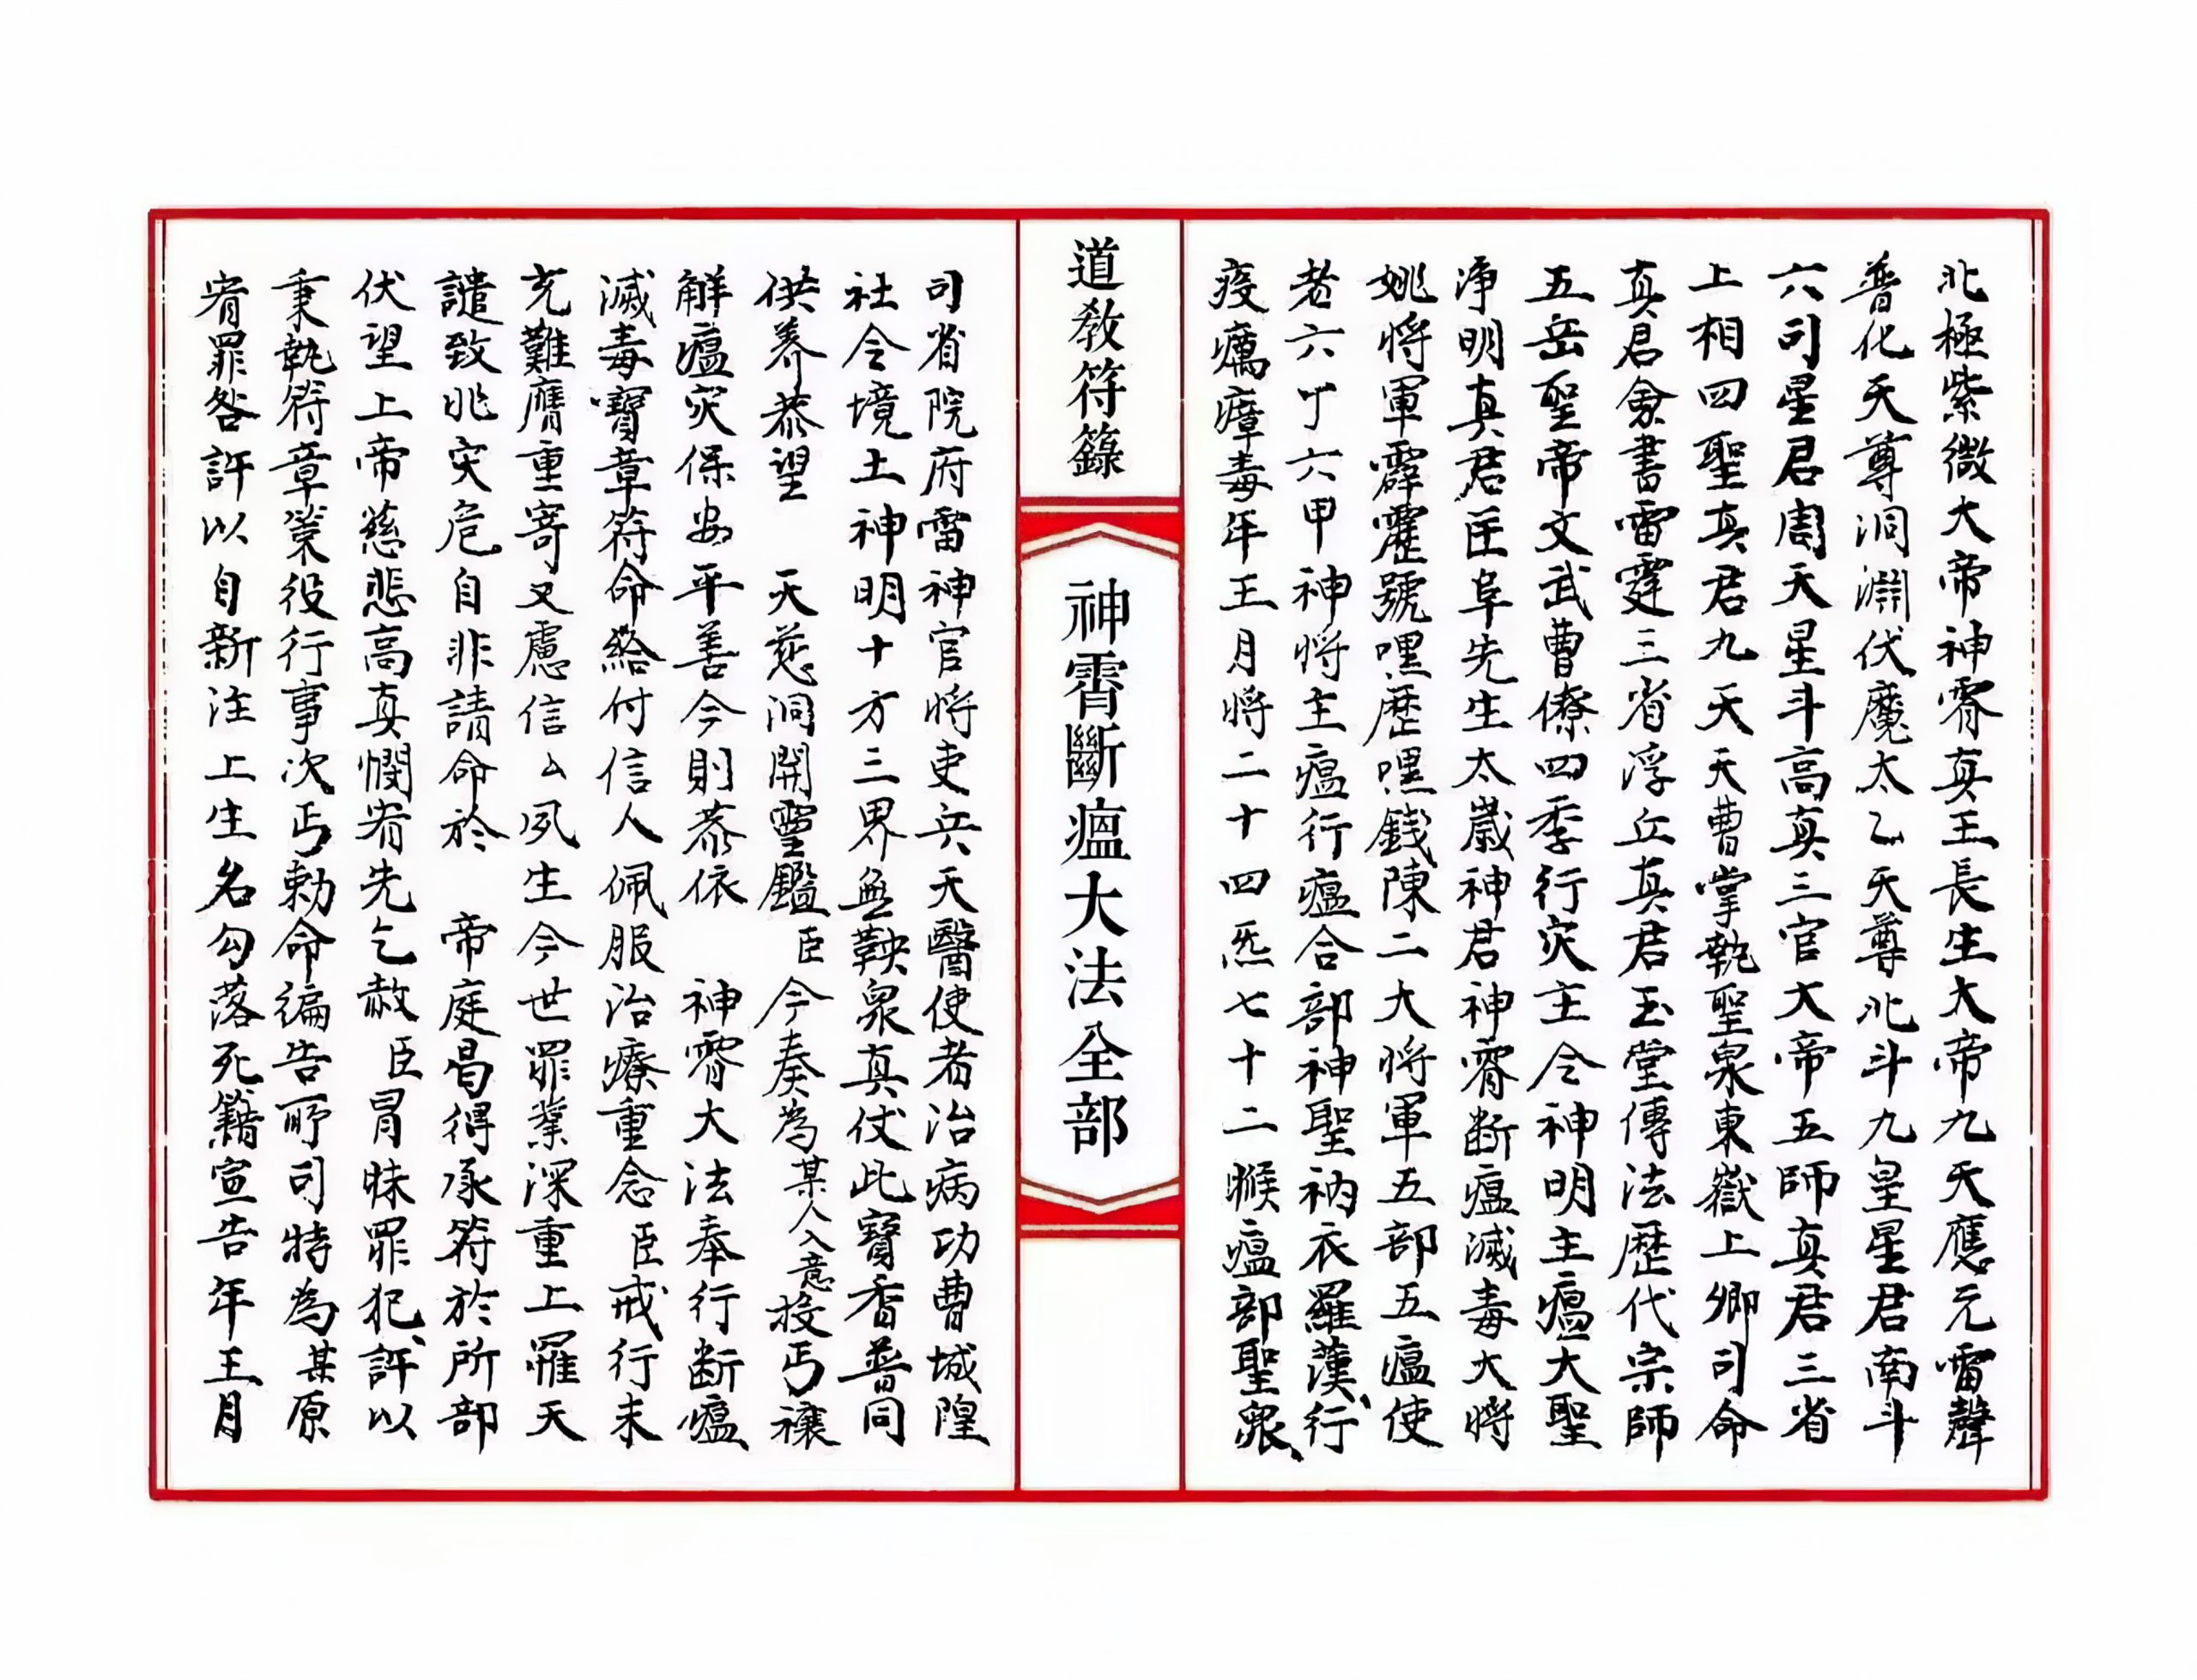 北極紫微大帝神霄真王長生大帝九天應元雷聲
普化天尊洞淵伏魔太乙天尊北斗九皇星君南斗
六司星君周天星斗高真三官大帝五師真君三省
上相四聖真君九天天曹掌執聖泉東嶽上卿司命
真君會書雷霆三省浮丘真君玉堂傳法歷代宗師
五岳聖帝文武曹僚四季行灾主令神明主瘟大聖
淨明真君匡阜先生太歲神君神霄断瘟滅毒大將
姚將軍霹靂號嘿歷嘿錢陳二大將軍五部五瘟使
者六丁六甲神將主瘟行瘟合部神聖衲衣羅漢行
疫癘瘴毒年王月將二十四炁七十二候瘟部聖眾
道教符籙
神霄斷瘟大法全部
司省院府雷神官將吏兵天醫使者治病功曹城隍
社令境土神明十方三界無鞅泉真仗此寶香普同
供养恭望 天慈洞開靈鑑臣今奏為某人入意投丐禳
解瘟灾保安平善今則恭依 神霄大法奉行断瘟
滅毒寶章符命給付信人佩服治療重念臣戒行未
充難膺重寄又慮信厶夙生今世罪業深重上罹天
譴致兆灾危自非請命於 帝庭曷得承符於所部
伏望上帝慈悲高真憫宥先乞赦臣冒昧罪犯許以
秉執符章策役行事次丐勅命徧告所司特為某原
宥罪咎許以自新注上生名勾落死籍宣告年王月